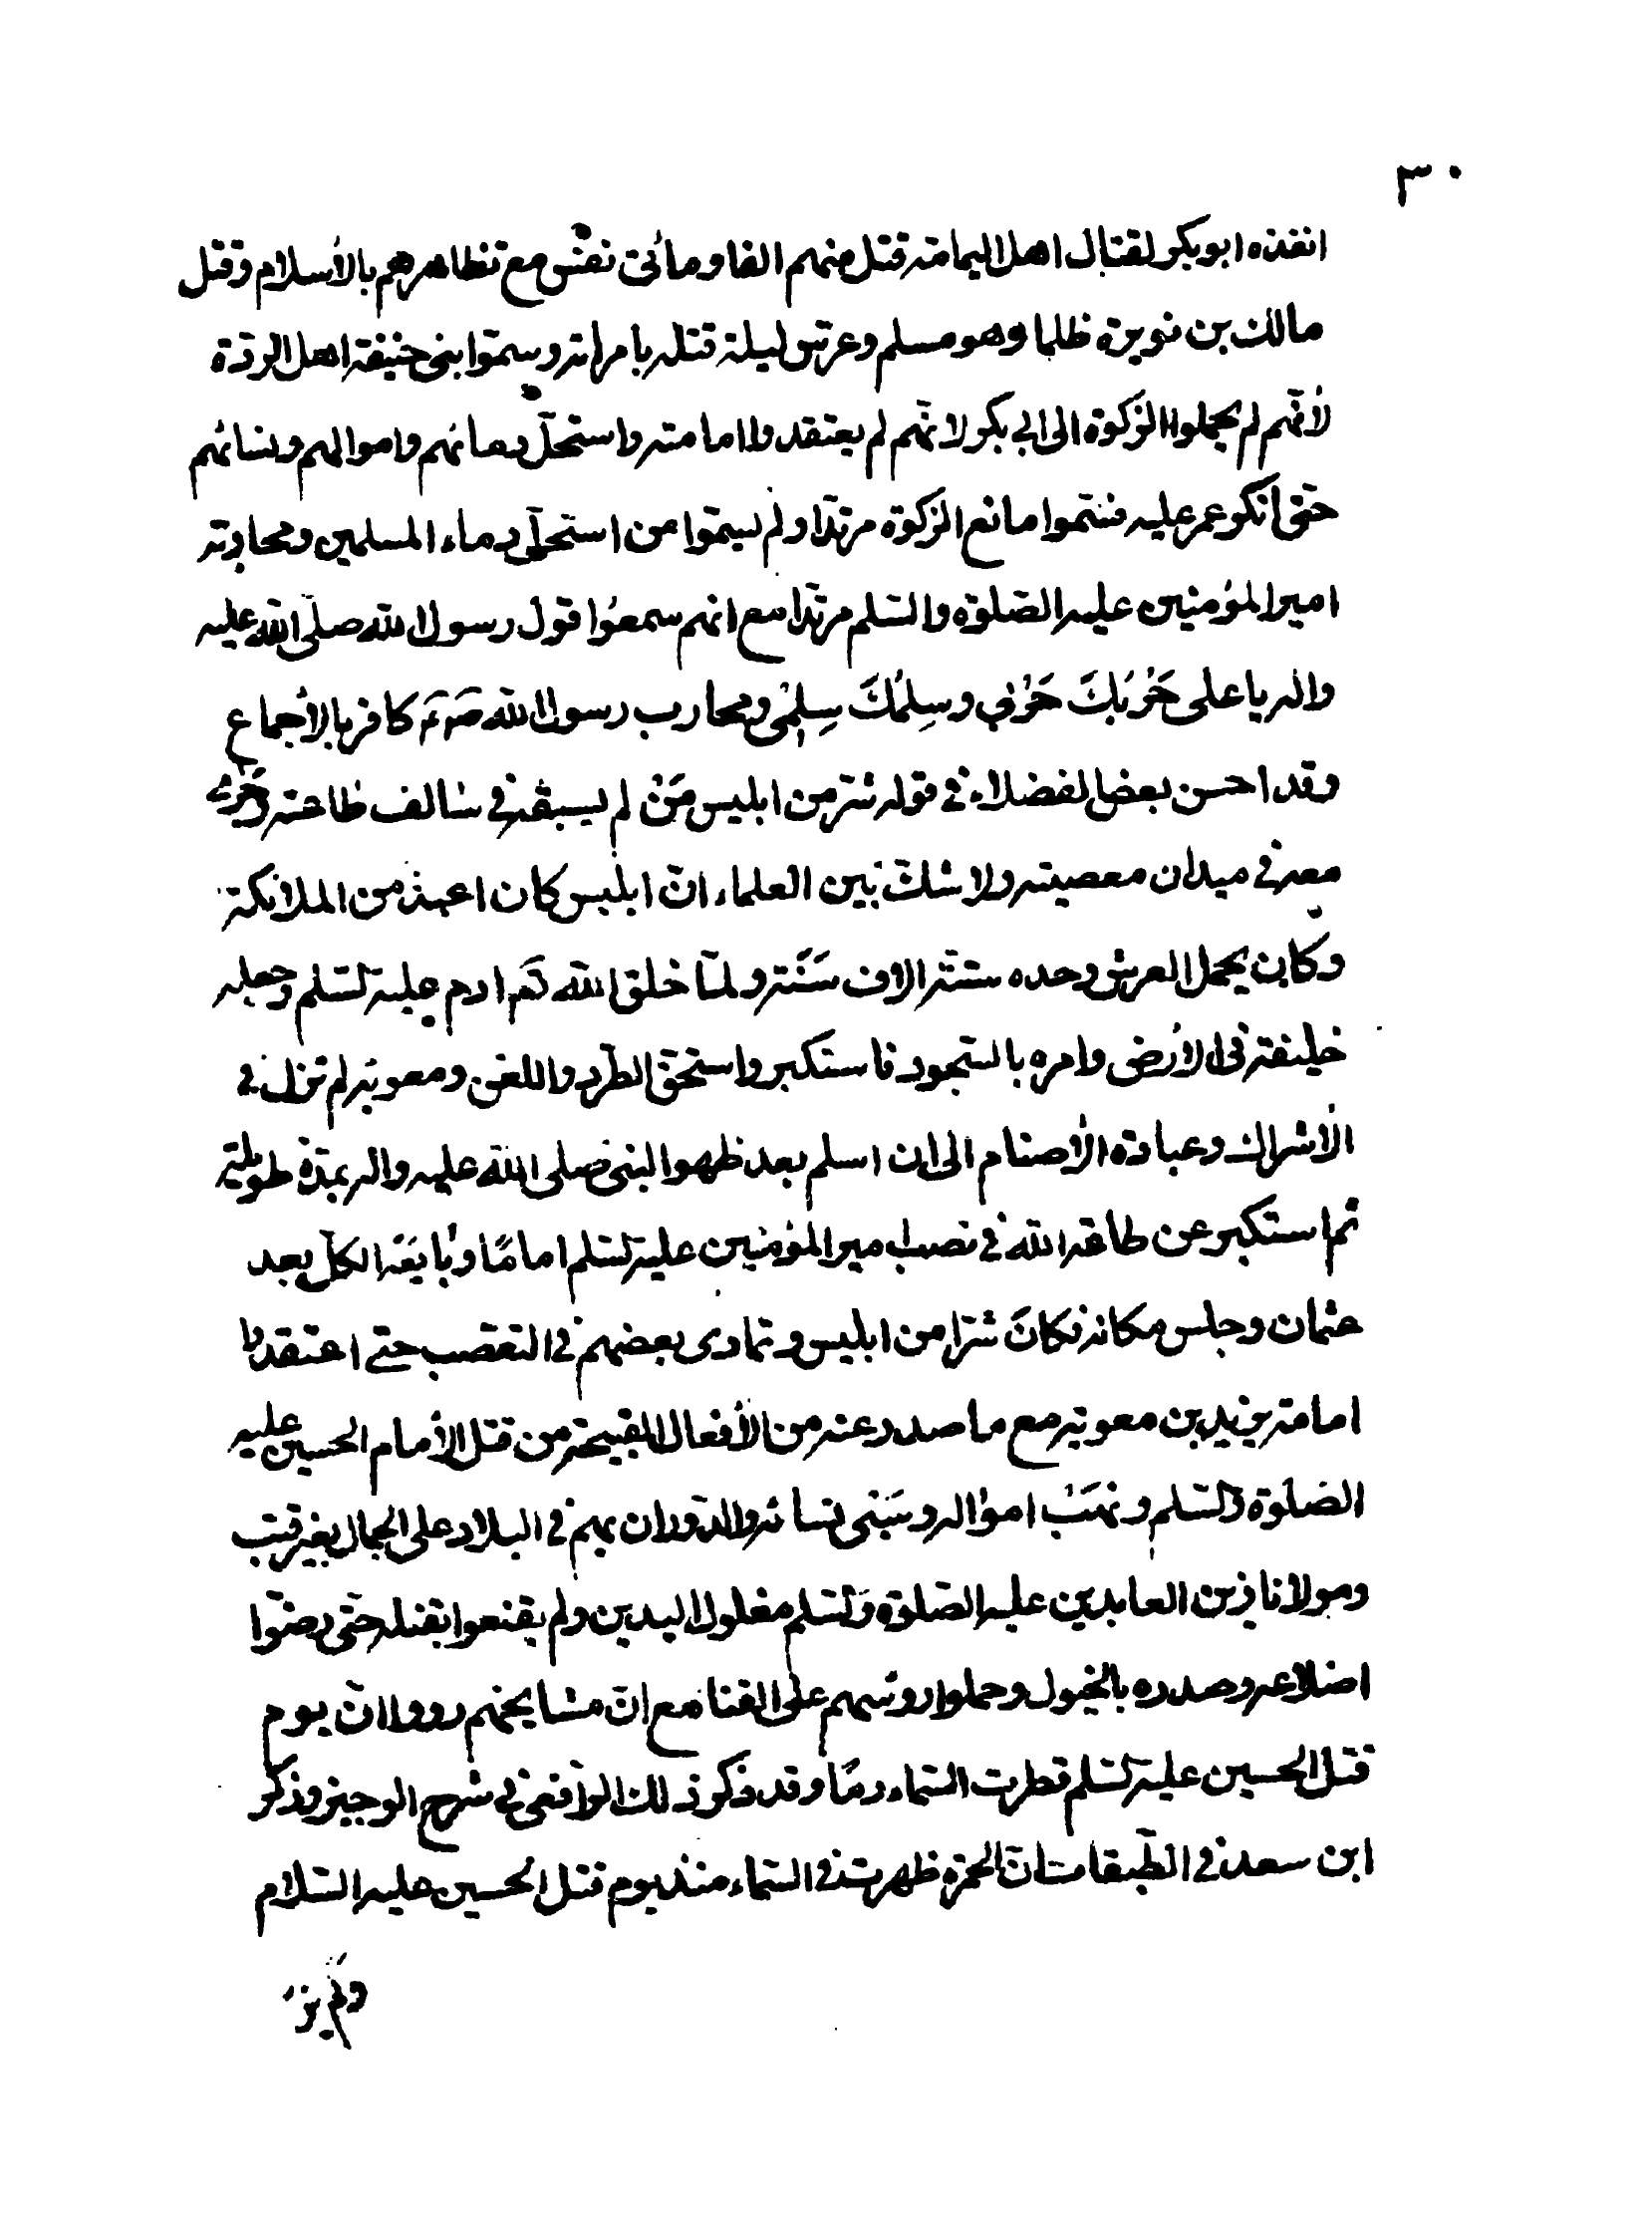 ٣٠
انفذه ابو بكر لقتال اهل اليمامة قتل منهم الفا ومأتى نفس مع تظاهرهم بالأسلام وقتل
مالك بن نويرة ظلما وهو مسلم وعرس ليلة قتله بامرأته وسمّوا بنى حنيفة اهل الردّة
لأنّهم لم يحملوا الزكوة الى ابي بكر لانّهم لم يعتقدوا امامته واستحلّ دمائهم واموالهم ونسائهم
حتى أنكر عمر عليه فسّموا مانع الزكوة مرتدّا ولم يسمّوا من استحلّ دماء المسلمين ومحاربة
امير المؤمنين عليه الصّلوة والسّلم مرتدّا مع انهم سمعوا قول رسول الله صلّى الله عليه
واله يا على حَرْبُكَ حَرْبي وسِلمُكَ سِلْمى ومحارب رسول الله ص م كافر بالأجماع
وقد احسن بعض الفضلاء في قوله شر من ابليس مَنْ لم يسبقه في سالف طاعته وجرى
معه في ميدان معصيته ولا شكّ بين العلماء انّ ابليس كان اعبد من الملائكة
وكان يحمل العرش وحده ستة الاف سَنَة ولمّا خلق الله تعم ادم عليه لسّلم وجعله
خليفة في الأرض وامره بالسّجود فاستكبر واستحق الطّرد واللعن ومعوية لم تزل في
الأشراك وعبادة الأصنام الى ان اسلم بعد ظهوا لنبى صلى الله عليه واله بمدّة طويلة
ثم استكبر عن طاعة الله في نصب امير المؤمنين عليه لسّلم امامًا وبايَعَه الكلّ بعد
عثمان وجلس مكانه فكانَ شرّا من ابليس وتمادى بعضهم في التعصب حتى اعتقدوا
امامة يزيد بن معوية مع ما صدر عنه من الأفعال القبيحة من قتل الأمام الحسين عليه
الصّلوة والسّلم ونهَبْ امواله وسَبْى نسائه والدّوران بهم في البلاد على الجمال بغير قتب
ومولانا زين العابدين عليه الصّلوة والسّلم مغلول اليدين ولم يقنعوا بقتله حتى رضّوا
اضلاعه وصدره بالخيول وحملوا روسهم على القنا مع انّ مشايخهم رووا انّ يوم
قتل الحسين عليه لسّلم قطرت السّماء دمًا وقد ذكر ذلك الرافعى في شرح الوجيز وذكر
ابن سعد في الطّبقات انّ الحمرة ظهرت في السّماء منذ يوم قتل الحسين عليه السّلام
ولم ير